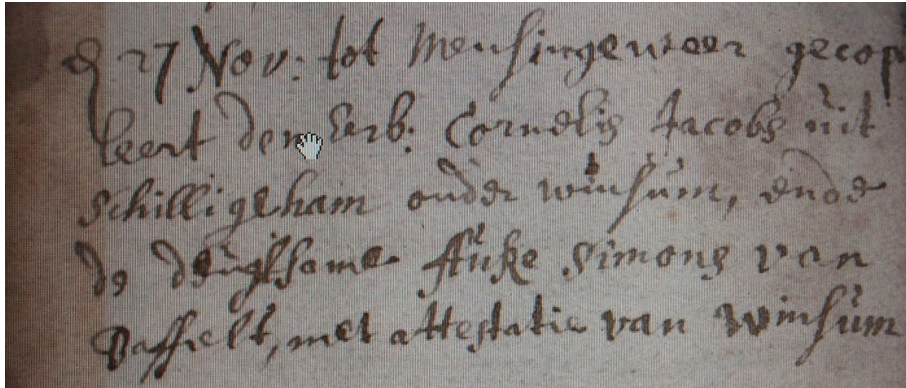 d 27 Nov: tot Mensingeweer gecop
leert den Eerb: Cornelis Jacobs uit
Schilligeham onder winsum, ende
de deugtsame Fuke Simons van
Saffelt, met attestatie van winsum